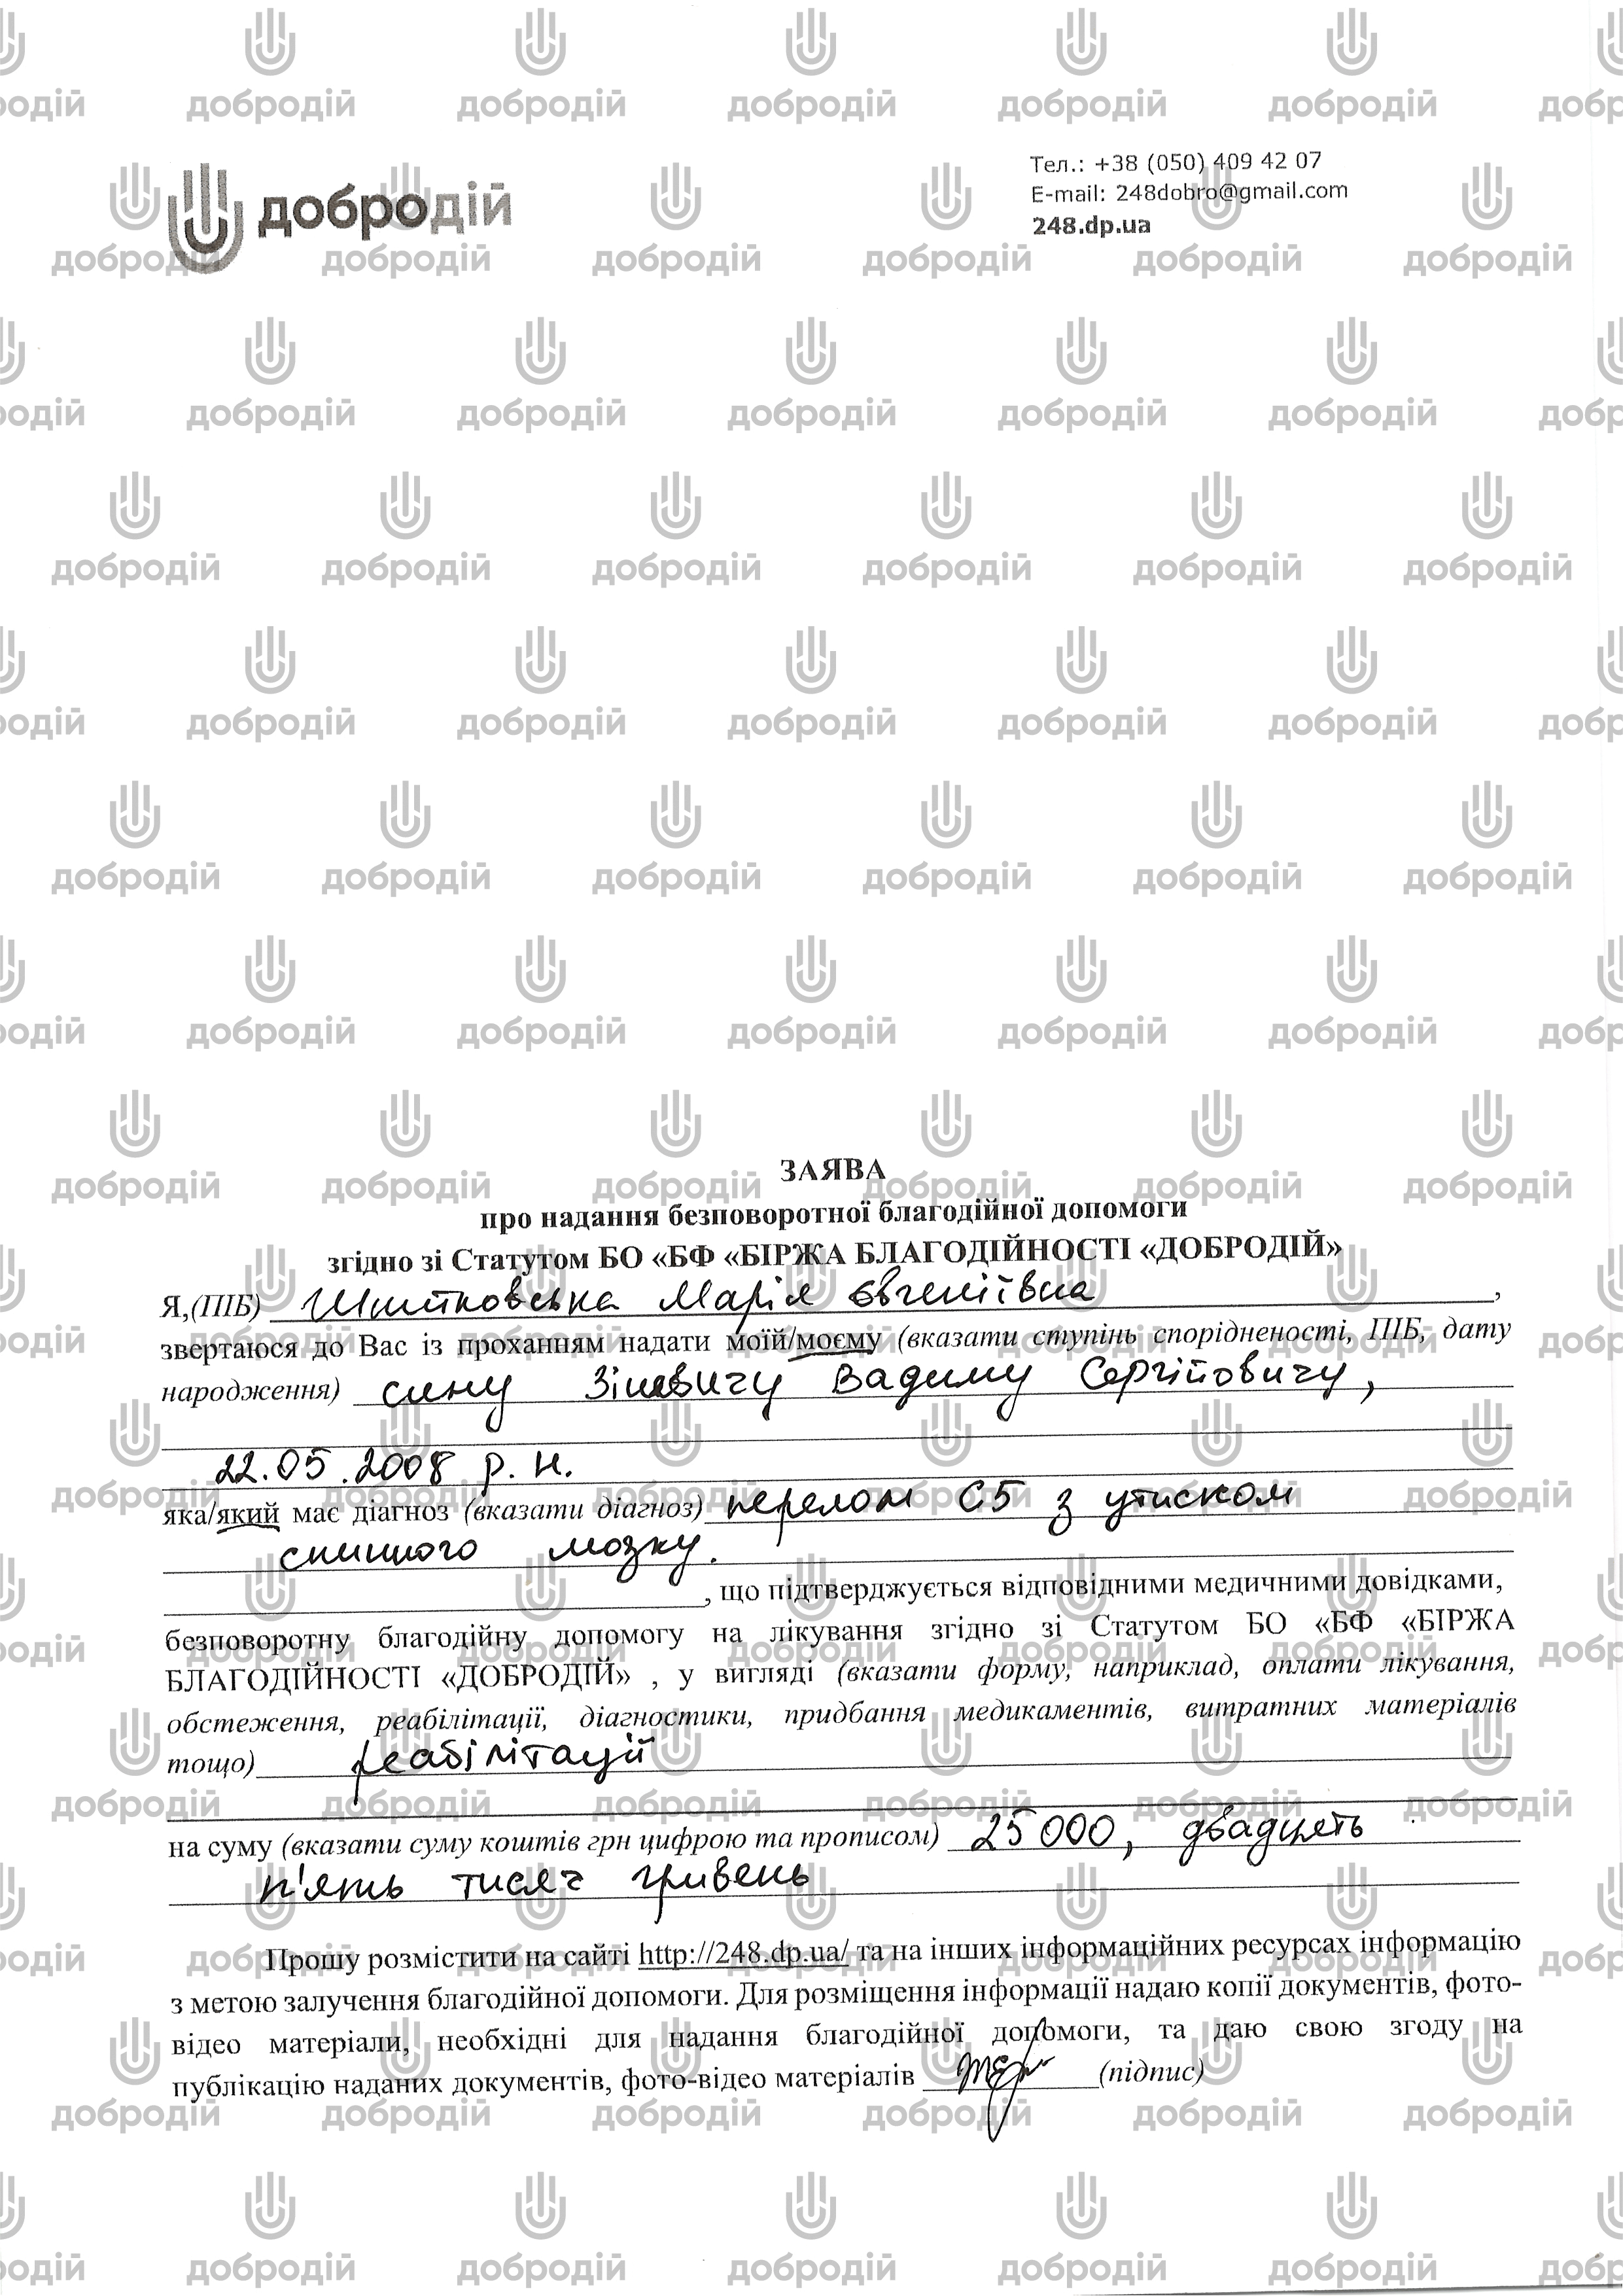 добродій
Тел.: +38 (050) 409 42 07
E-mail: 248dobro@gmail.com
248.dp.ua
ЗАЯВА
про надання безповоротної благодійної допомоги
згідно зі Статутом БО «БФ «БІРЖА БЛАГОДІЙНОСТІ «ДОБРОДІЙ»
Я,(ПІБ) Марія Євгеніївна,
звертаюся до Вас із проханням надати моїй/моєму (вказати ступінь спорідненості, ПІБ, дату
народження) сину Зіневичу Вадиму Сергійовичу,
22.05.2008 р. н.
яка/який має діагноз (вказати діагноз) перелом С5 з утиском
спинного мозку.
, що підтверджується відповідними медичними довідками,
безповоротну благодійну допомогу на лікування згідно зі Статутом БО «БФ «БІРЖА
БЛАГОДІЙНОСТІ «ДОБРОДІЙ» , у вигляді (вказати форму, наприклад, оплати лікування,
обстеження, реабілітації, діагностики, придбання медикаментів, витратних матеріалів
тощо) реабілітації
на суму (вказати суму коштів грн цифрою та прописом) 25 000, двадцять
п'ять тисяч гривень
Прошу розмістити на сайті http://248.dp.ua/ та на інших інформаційних ресурсах інформацію
з метою залучення благодійної допомоги. Для розміщення інформації надаю копії документів, фото-
відео матеріали, необхідні для надання благодійної допомоги, та даю свою згоду на
публікацію наданих документів, фото-відео матеріалів (підпис)